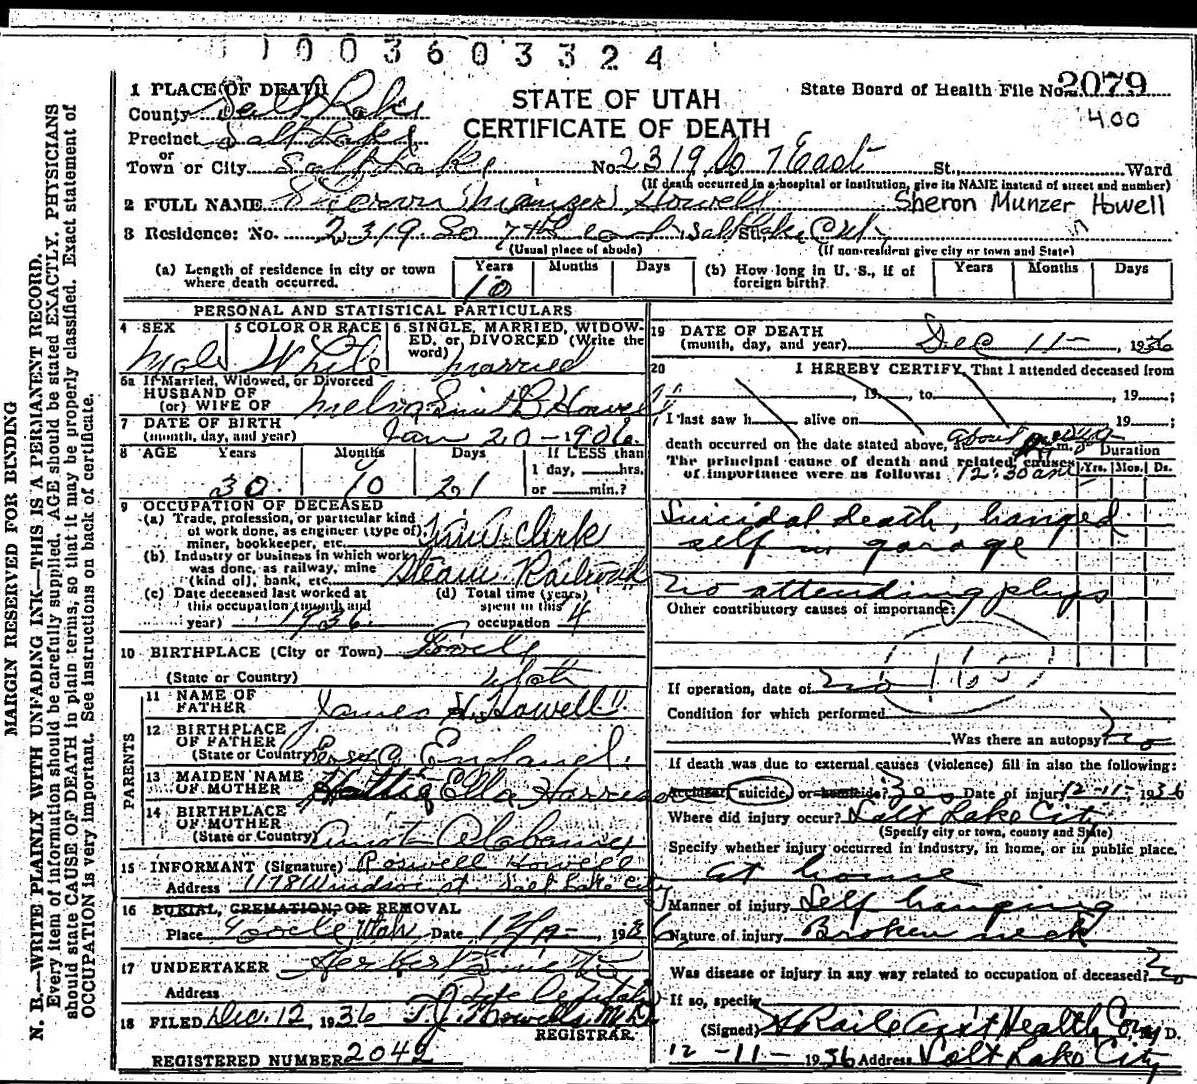 1003603324
1 PLACE OF DEATH
County Salt Lake
Precinct Salt Lake
or
Town or City Salt Lake No. 2319 So 7 East St., Ward
(If death occurred in a hospital or institution, give its NAME instead of street and number)
STATE OF UTAH
CERTIFICATE OF DEATH
State Board of Health File No. 2079
400
2 FULL NAME Sheron Munzer Howell Sheron Munzer Howell
3 Residence: No. 2319 So 7th East St. Salt Lake City
(Usual place of abode) (If non-resident give city or town and State)
(a) Length of residence in city or town where death occurred. Years 10 Months Days
(b) How long in U. S., if of foreign birth? Years Months Days
PERSONAL AND STATISTICAL PARTICULARS
4 SEX Male
5 COLOR OR RACE White
6 SINGLE, MARRIED, WIDOWED, or DIVORCED (Write the word) Married
6a If Married, Widowed, or Divorced
HUSBAND OF
(or) WIFE OF Melva Howell
7 DATE OF BIRTH
(month, day, and year) Jan 20-1906
8 AGE Years 30 Months 10 Days 21 If LESS than 1 day, hrs. or min.?
9 OCCUPATION OF DECEASED
(a) Trade, profession, or particular kind of work done, as engineer (type of), miner, bookkeeper, etc. clerk
(b) Industry or business in which work was done, as railway, mine (kind of), bank, etc. Steam Railroad
(c) Date deceased last worked at this occupation (month and year) 1936
(d) Total time (years) spent in this occupation 4
10 BIRTHPLACE (City or Town)
(State or Country) Utah
PARENTS
11 NAME OF FATHER James H. Howell
12 BIRTHPLACE OF FATHER
(State or Country) England
13 MAIDEN NAME OF MOTHER Hattie Ella Harris
14 BIRTHPLACE OF MOTHER
(State or Country) Alabama
15 INFORMANT (Signature) Roswell Howell
Address 1178 Windsor st. Salt Lake City
16 BURIAL, CREMATION, OR REMOVAL
Place Utah Date 1936
17 UNDERTAKER
Address
18 FILED Dec. 12, 1936 T.J. Howells, M.D.
REGISTRAR.
REGISTERED NUMBER 2042
19 DATE OF DEATH
(month, day, and year) Dec 11-, 1936
20 I HEREBY CERTIFY, That I attended deceased from
, 19, to , 19;
I last saw h alive on 19;
death occurred on the date stated above, at about m.
12:30 am
The principal cause of death and related causes of importance were as follows:
Duration
Yrs. Mos. Ds.
Suicidal death, hanged
self in garage
no attending phys
Other contributory causes of importance:
If operation, date of no
Condition for which performed
Was there an autopsy? no
If death was due to external causes (violence) fill in also the following:
Accident, suicide, or homicide? Yes Date of injury 12-11-, 1936
Where did injury occur? Salt Lake City
(Specify city or town, county and State)
Specify whether injury occurred in industry, in home, or in public place.
at house
Manner of injury Self hanging
Nature of injury Broken neck
Was disease or injury in any way related to occupation of deceased? No
If so, specify
(Signed) Ass't Health Com M.D.
12-11-1936 Address Salt Lake City
MARGIN RESERVED FOR BINDING
N. B.—WRITE PLAINLY WITH UNFADING INK—THIS IS A PERMANENT RECORD.
Every item of information should be carefully supplied. AGE should be stated EXACTLY. PHYSICIANS
should state CAUSE OF DEATH in plain terms, so that it may be properly classified. Exact statement of
OCCUPATION is very important. See instructions on back of certificate.